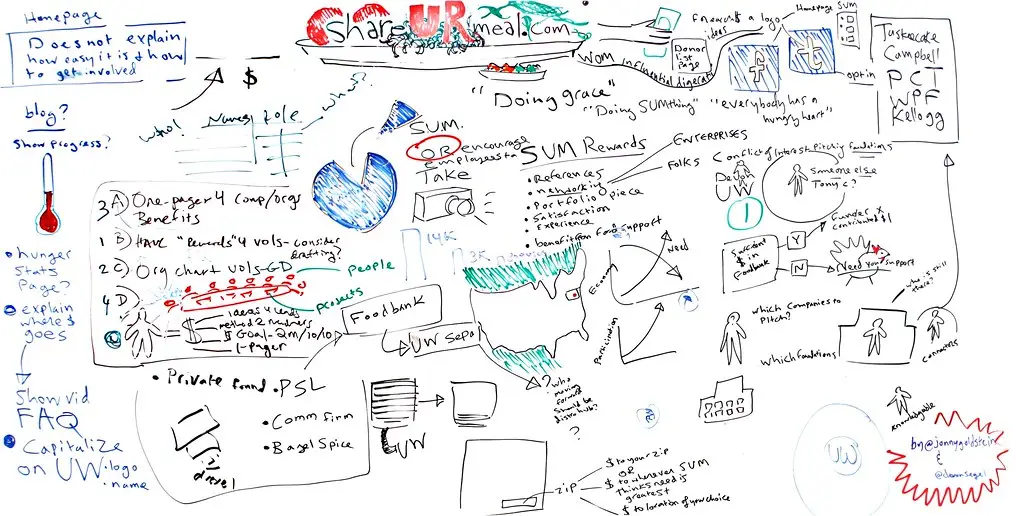 Homepage
Does not explain
how easy it is & how
to get involved
blog?
Show progress?
hunger
Stats
Page?
explain
where $
goes
Show vid
FAQ
Capitalize
on UW.logo
.name
Share UR meal.com
$
who?
Names
role
what?
"Doing grace"
WOM influential
ideas
Donor
list
page
a logo
Homepage SUM
f
t
opt in
"Doing SUMthing"
"everybody has a
hungry heart"
Campbell
PCT
WPF
Kellogg
SUM.
OR encourage
employees to
Take
SUM Rewards
References
networking
Portfolio piece
Satisfaction
Experience
benefit from food support
ENTERPRISES
FOLKS
3 A) One-pager 4 comp/orgs
Benefits
1 B) HAVE "Rewards" 4 vols- consider
drafting?
2 C) Org chart vols-GD
people
4 D)
projects
= $
ideas 4 leads
$ Goal-2m/10/10
1-pager
14K
Foodbank
UW Sepa
Private found.
PSL
Comm firm
Bagel Spice
UW
Need
Participation
Conflict of Interest Pitching foundations
Devon
UW
1
Someone else
Tony C?
Sufficient
$ in
Foodbank
Y
N
Funder X
contributed $1
Need your support
which companies to
Pitch?
which foundations
who is still
there?
connectors
Knowledgable
? who
moving
forward
should be
distro hub?
?
zip
$ to your zip
OR
$ to wherever SUM
thinks need is
greatest
$ to location of your choice
UW
by @jonnygoldstein
&
@devonsegel